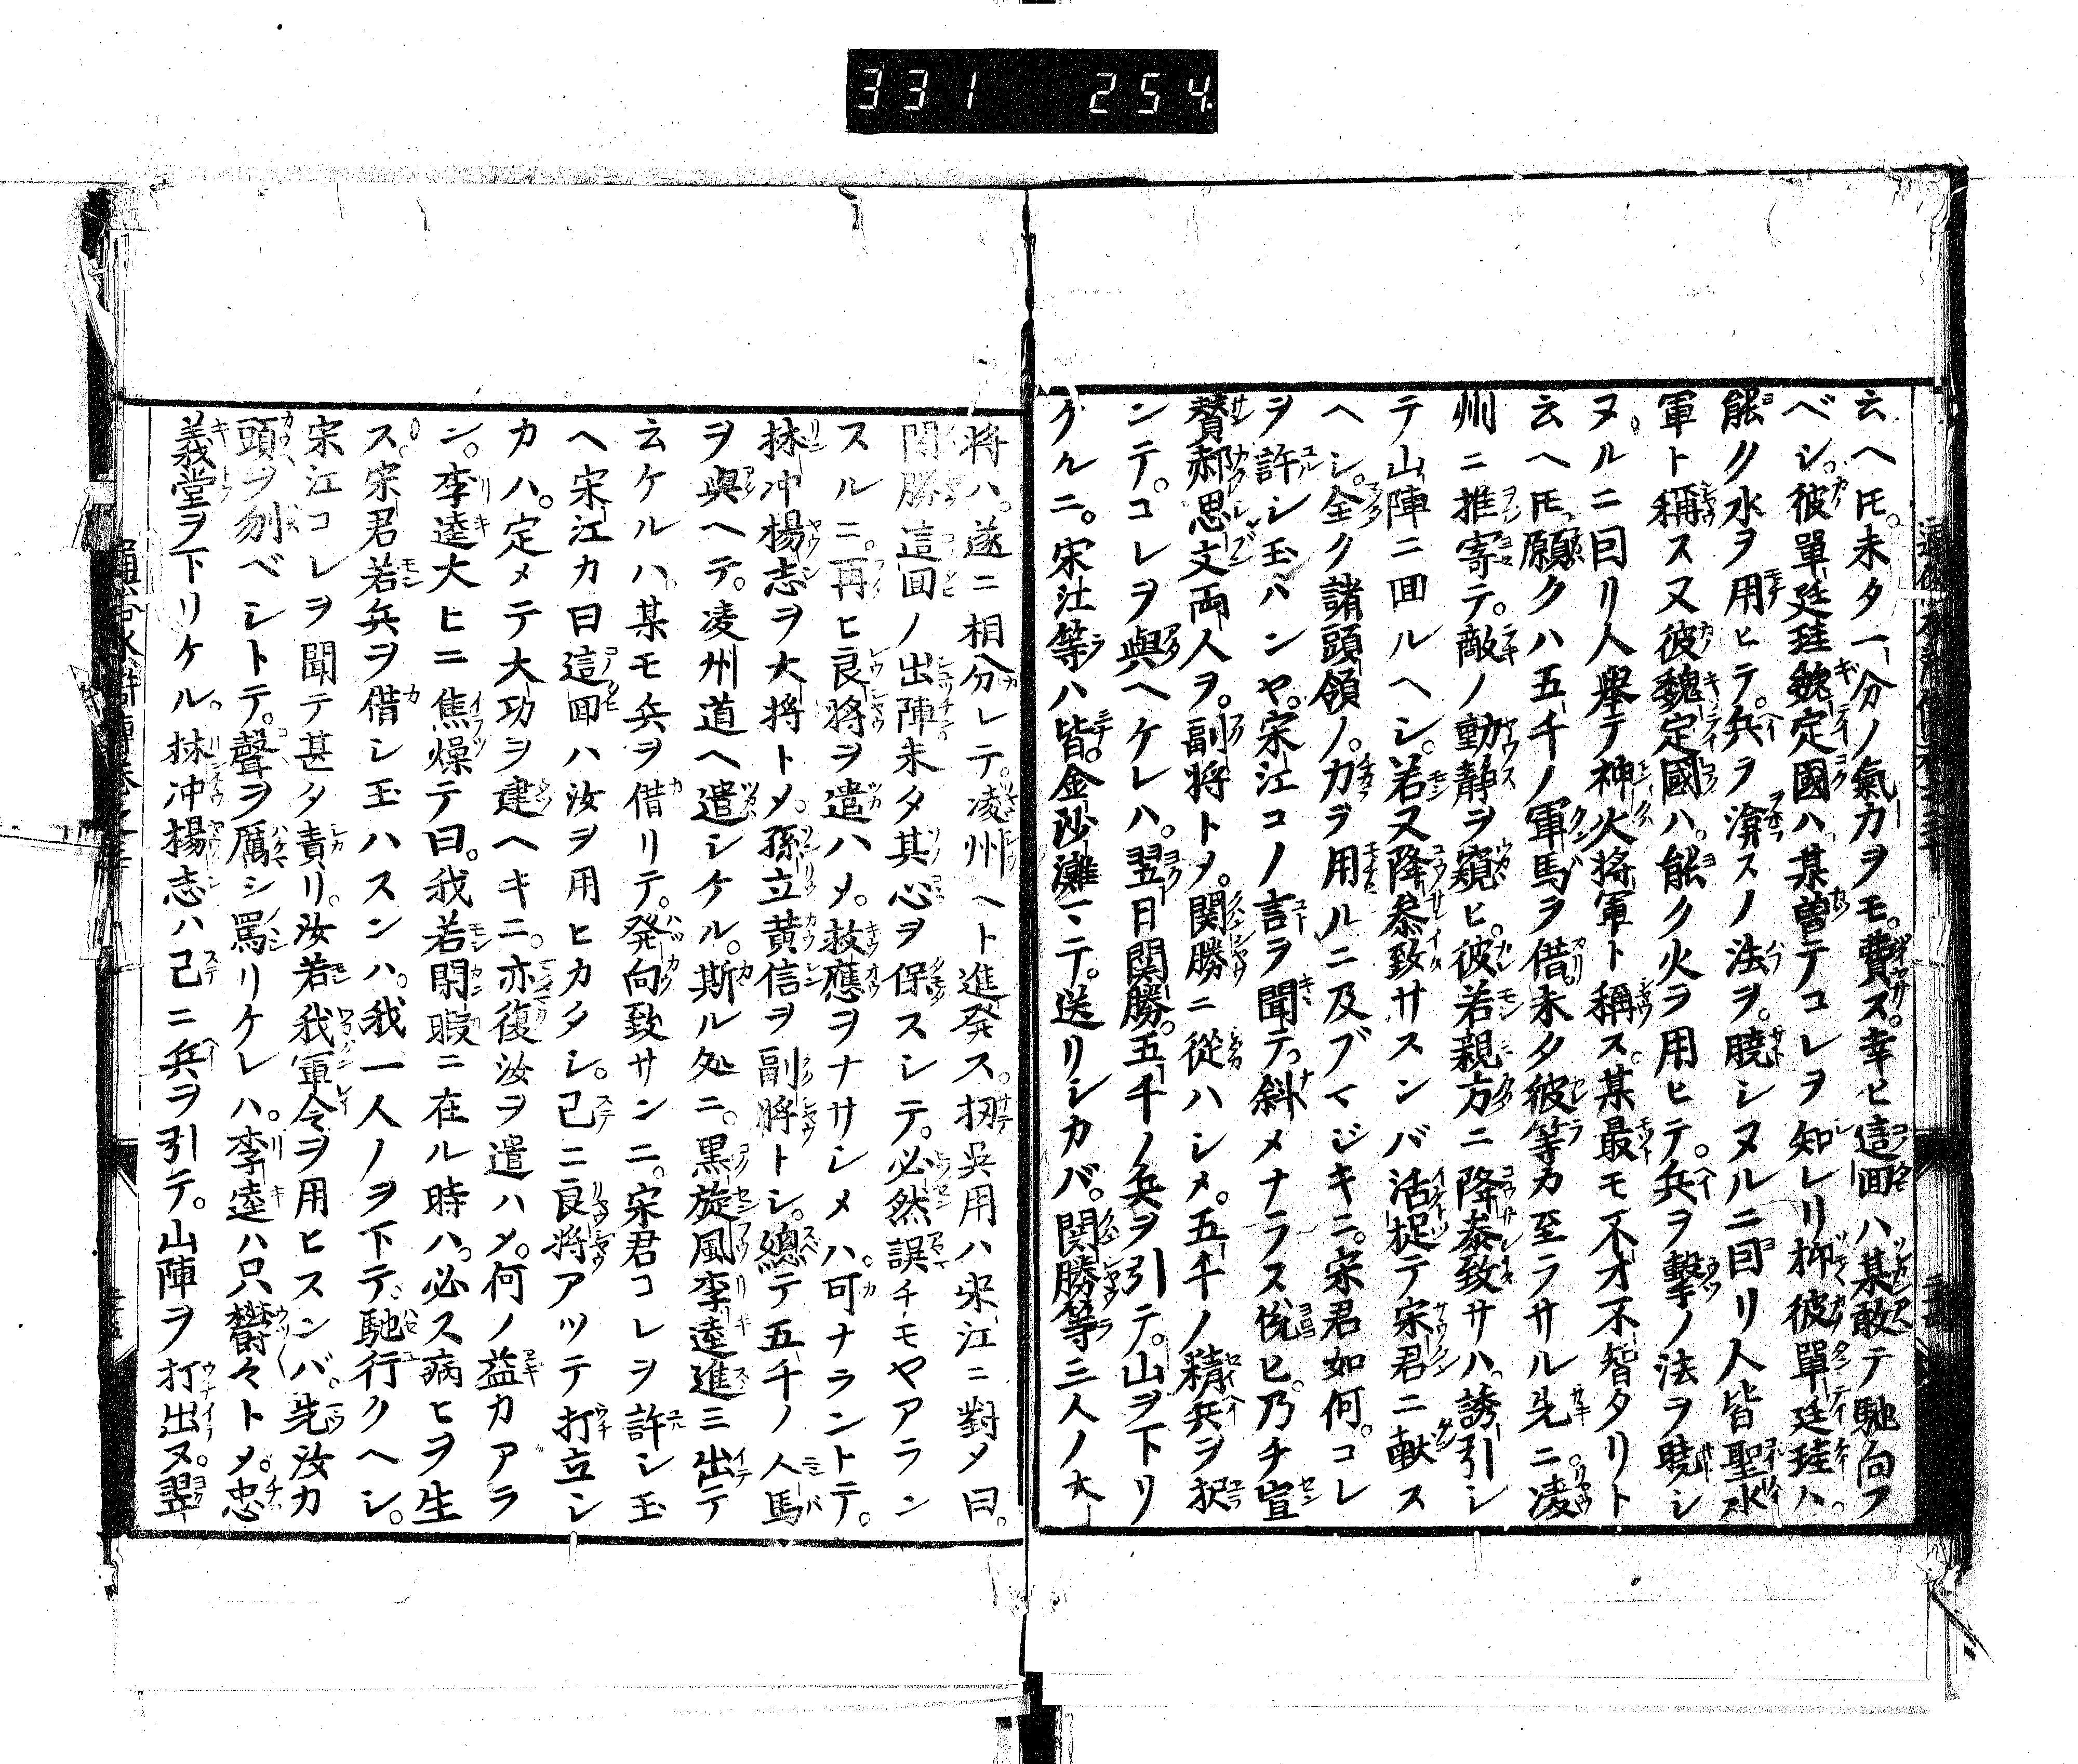 331 254
云ヘ𪜈。未タ一分ノ氣力ヲモ。費ス。幸ヒ這回ハ某敢テ馳向フ
ベシ。彼單廷珪魏定國ハ。某曽テコレヲ知レリ抑彼單廷珪ハ。
能ク水ヲ用ヒテ。兵ヲ渰スノ法ヲ。曉シヌルニ曰リ人皆聖水
軍ト稱ス又彼魏定國ハ。能ク火ヲ用ヒテ。兵ヲ擊ノ法ヲ曉シ
ヌルニ曰リ人舉テ神火将軍ト稱ス。某最モ不才不智タリト
云ヘ𪜈。願クハ五千ノ軍馬ヲ借。未タ彼等カ至ラサル先ニ。凌
州ニ推寄テ。敵ノ動静ヲ窺ヒ。彼若親方ニ降叅致サハ。誘引シ
テ山陣ニ回ルヘシ。若又降叅致サスンバ活捉テ宋君ニ献ス
ヘシ。全ク諸頭領ノ。力ヲ用ルニ及ブマジキニ。宋君如何。コレ
ヲ許シ玉ハンヤ。宋江コノ言ヲ聞テ。斜メナラス悦ヒ。乃チ宣
賛郝思文両人ヲ。副将トメ。関勝ニ從ハシメ。五千ノ精兵ヲ択
ンテ。コレヲ與ヘケレハ。翌日関勝。五千ノ兵ヲ引テ。山ヲ下リ
クルニ。宋江等ハ皆。金沙灘ニテ。送リシカバ。関勝等三人ノ大
将ハ。遂ニ相分レテ。凌州ヘト進発ス。扨吳用ハ宋江ニ對メ曰。
関勝這回ノ出陣未タ其心ヲ保スシテ。必然誤チモヤアラン
スルニ。再ヒ良將ヲ遣ハメ。救應ヲナサシメハ。可ナラントテ。
林冲揚志ヲ大将トメ。孫立黄信ヲ副將トシ。總テ五千ノ人馬
ヲ與ヘテ。凌州道ヘ遣シケル。斯ル処ニ。黒旋風李逵進ミ出テ
云ケルハ。某モ兵ヲ借リテ。発向致サンニ。宋君コレヲ許シ玉
ヘ宋江カ曰這回ハ汝ヲ用ヒカタシ。已ニ良將アツテ打立シ
カハ。定メテ大功ヲ建ヘキニ。亦復汝ヲ遣ハメ。何ノ益カアラ
ン。李逵大ヒニ焦燥テ曰。我若閑暇ニ在ル時ハ。必ス病ヒヲ生
ス。宋君若兵ヲ借シ玉ハスンハ。我一人ノヲ下テ。馳行クヘシ。
宋江コレヲ聞テ甚タ責リ。汝若我軍令ヲ用ヒスンバ。先汝カ
頭ヲ刎ベシトテ。聲ヲ厲シ罵リケレハ。李逵ハ只欝々トメ。忠
義堂ヲ下リケル。林冲揚志ハ已ニ兵ヲ引テ。山陣ヲ打出ヌ。翌